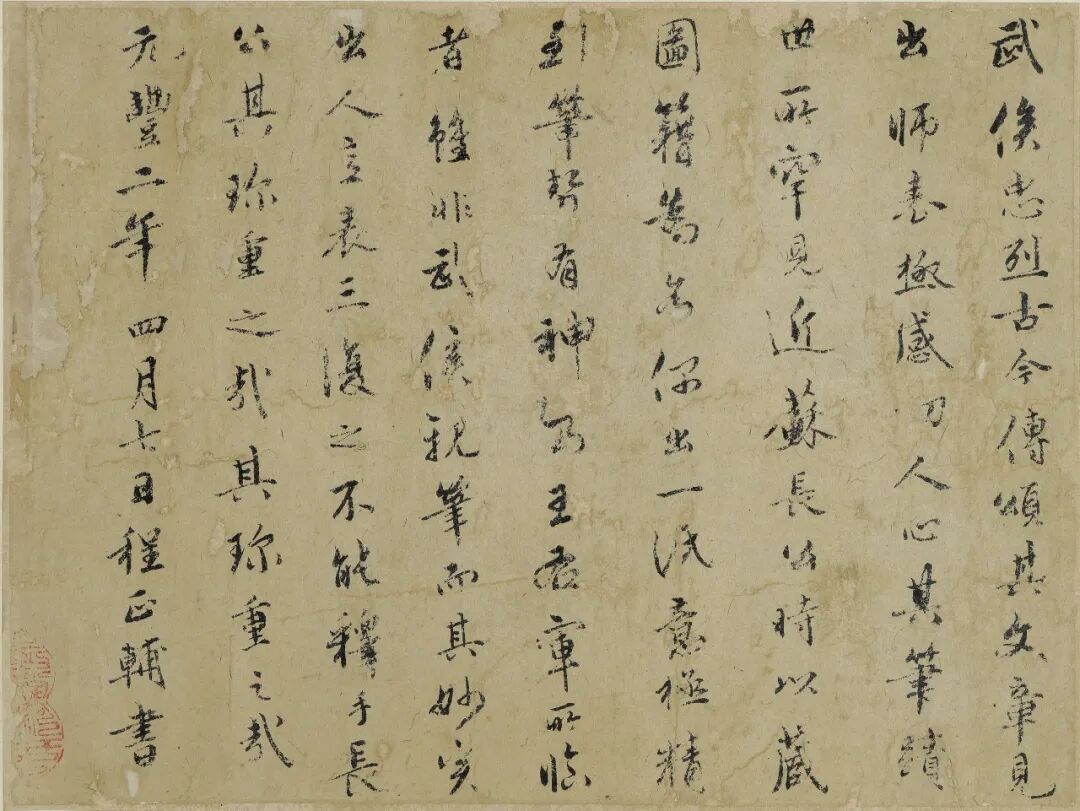 武侯忠烈古今傳頌其文章見
出師表極感切人心其筆蹟
世所罕見近蘇長公時以藏
圖籍為出一紙意極精
到筆勢有神王右軍所臨
者雖非武侯親筆而其妙実
出人意表三復之不能釋手長
公其珍重之哉其珍重之哉
元豐二年四月七日程正輔書